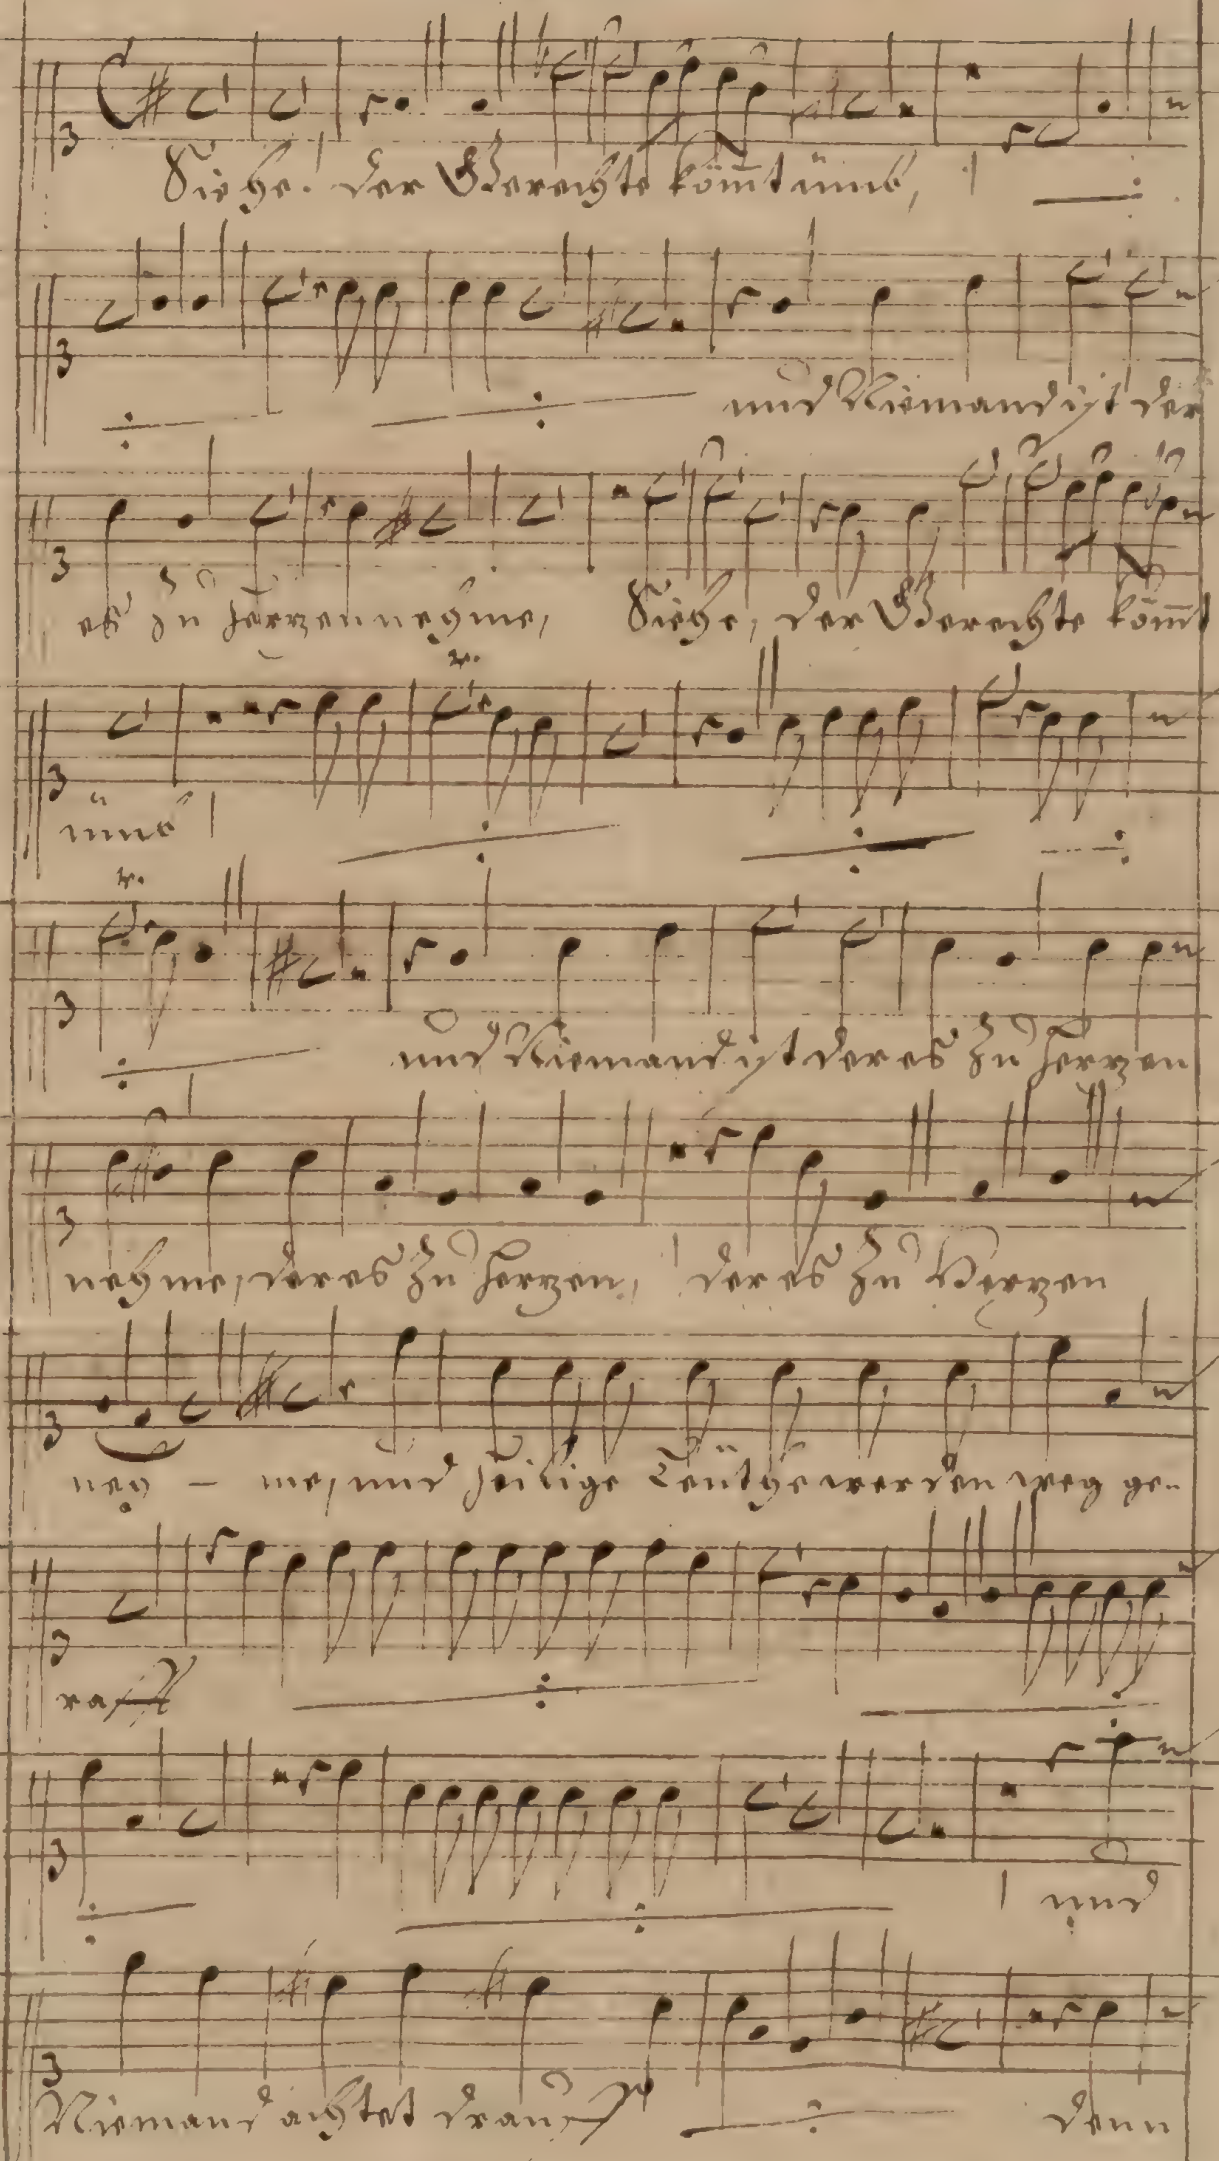 Siehe! der Gerechte köm̅t ümb,
und Niemand ist der
es zu Herzen nehme, Siehe, der Gerechte köm̅t
ümb
und Niemand ist der es zu Herzen
nehme, der es zu Herzen, der es zu Herzen
neh - me, und heilige Leüthe werden weg ge-
rafft
und
Niemand achtet drauff
denn